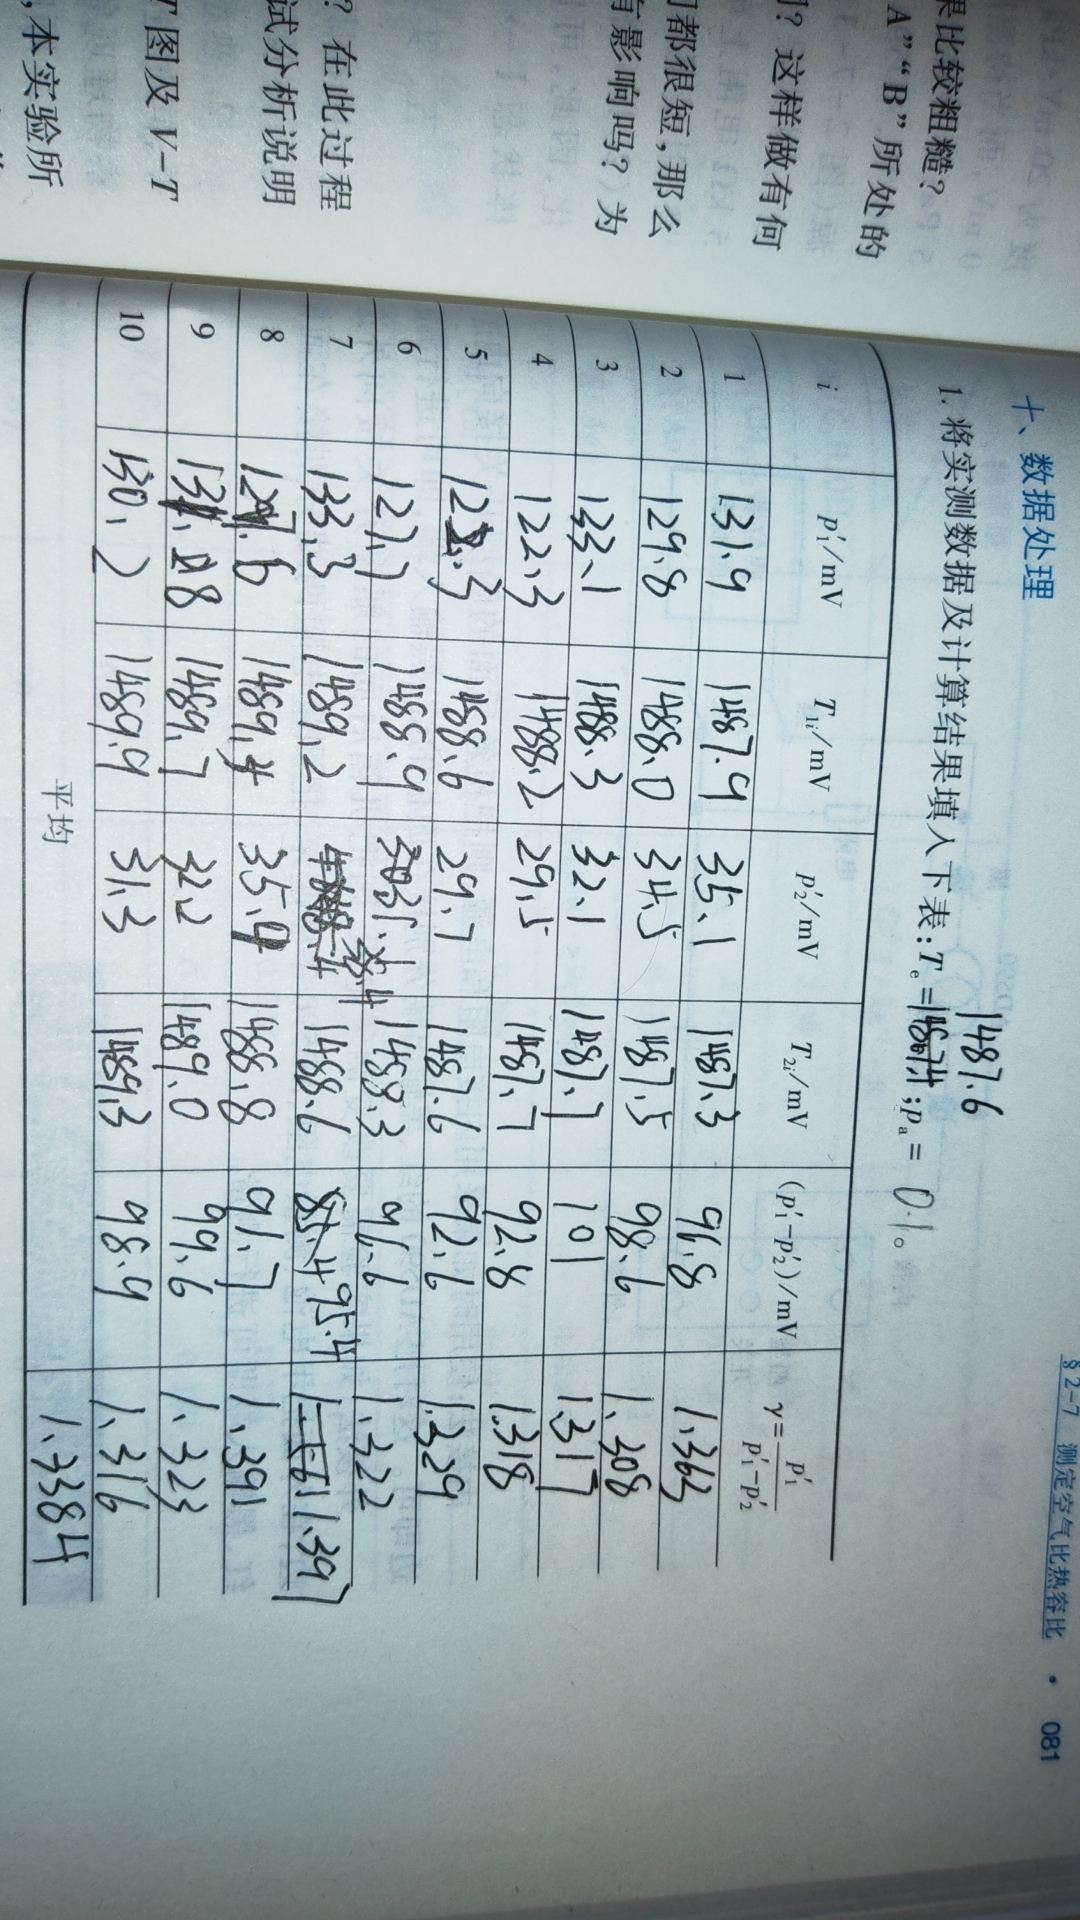 果比较粗糙？
A”“B”所处的
？这样做有何
都很短，那么
有影响吗？为
？在此过程
试分析说明
T图及V-T
，本实验所
§2-7 测定空气比热容比 · 081
十、数据处理
1487.6
1. 将实测数据及计算结果填入下表：Te= ；pa= 0.1。
i p′1/mV T1i/mV p′2/mV T2i/mV (p′1-p′2)/mV γ=p′1/(p′1-p′2)
1 131.9 1487.9 35.1 1487.3 96.8 1.363
2 129.8 1488.0 34.5 1487.5 98.6 1.308
3 133.1 1488.3 32.1 1487.7 101 1.317
4 122.3 1488.2 29.5 1487.7 92.8 1.318
5 122.3 1488.6 29.7 1487.6 92.6 1.329
6 127.7 1488.9 1488.3 96.6 1.322
7 133.3 1489.2 1488.6 95.4 1.397
8 127.6 1489.4 35.9 1488.8 91.7 1.391
9 131.8 1489.7 32.2 1489.0 99.6 1.323
10 130.2 1489.9 31.3 1489.3 98.9 1.316
平均 1.3384